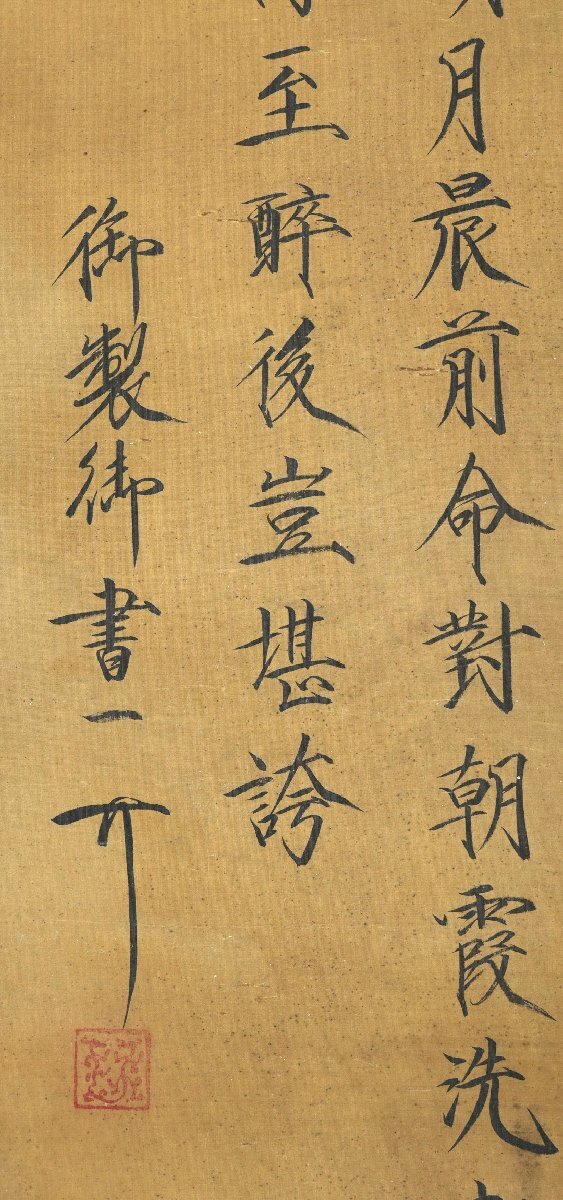 月晨前命對朝霞洗
至醉後豈堪誇
御製御書一